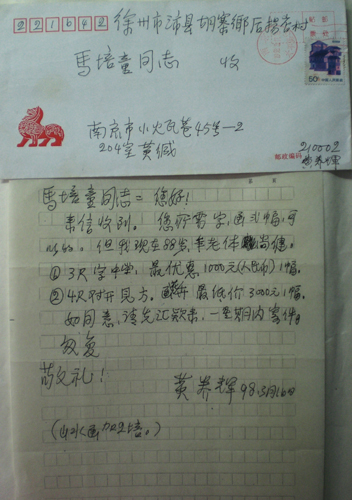 221642
徐州市沛县胡寨鄉后楊𠫤村
馬培童同志 收
50分
南京市小火瓦巷45号-2
204室 黄缄
邮政编码
210002
馬培童同志=您好!
来信收到。您所需字,画式幅,可
以的。但我现在88岁,年老体
①3尺字中堂,最优惠1000元(人民币)1幅。
②4尺对开見方。最低价3000元1幅。
如同意,请先汇款来,一星期内寄件。
级复
敬礼!
黄养辉 98.3月16日
(山水画加倍。)